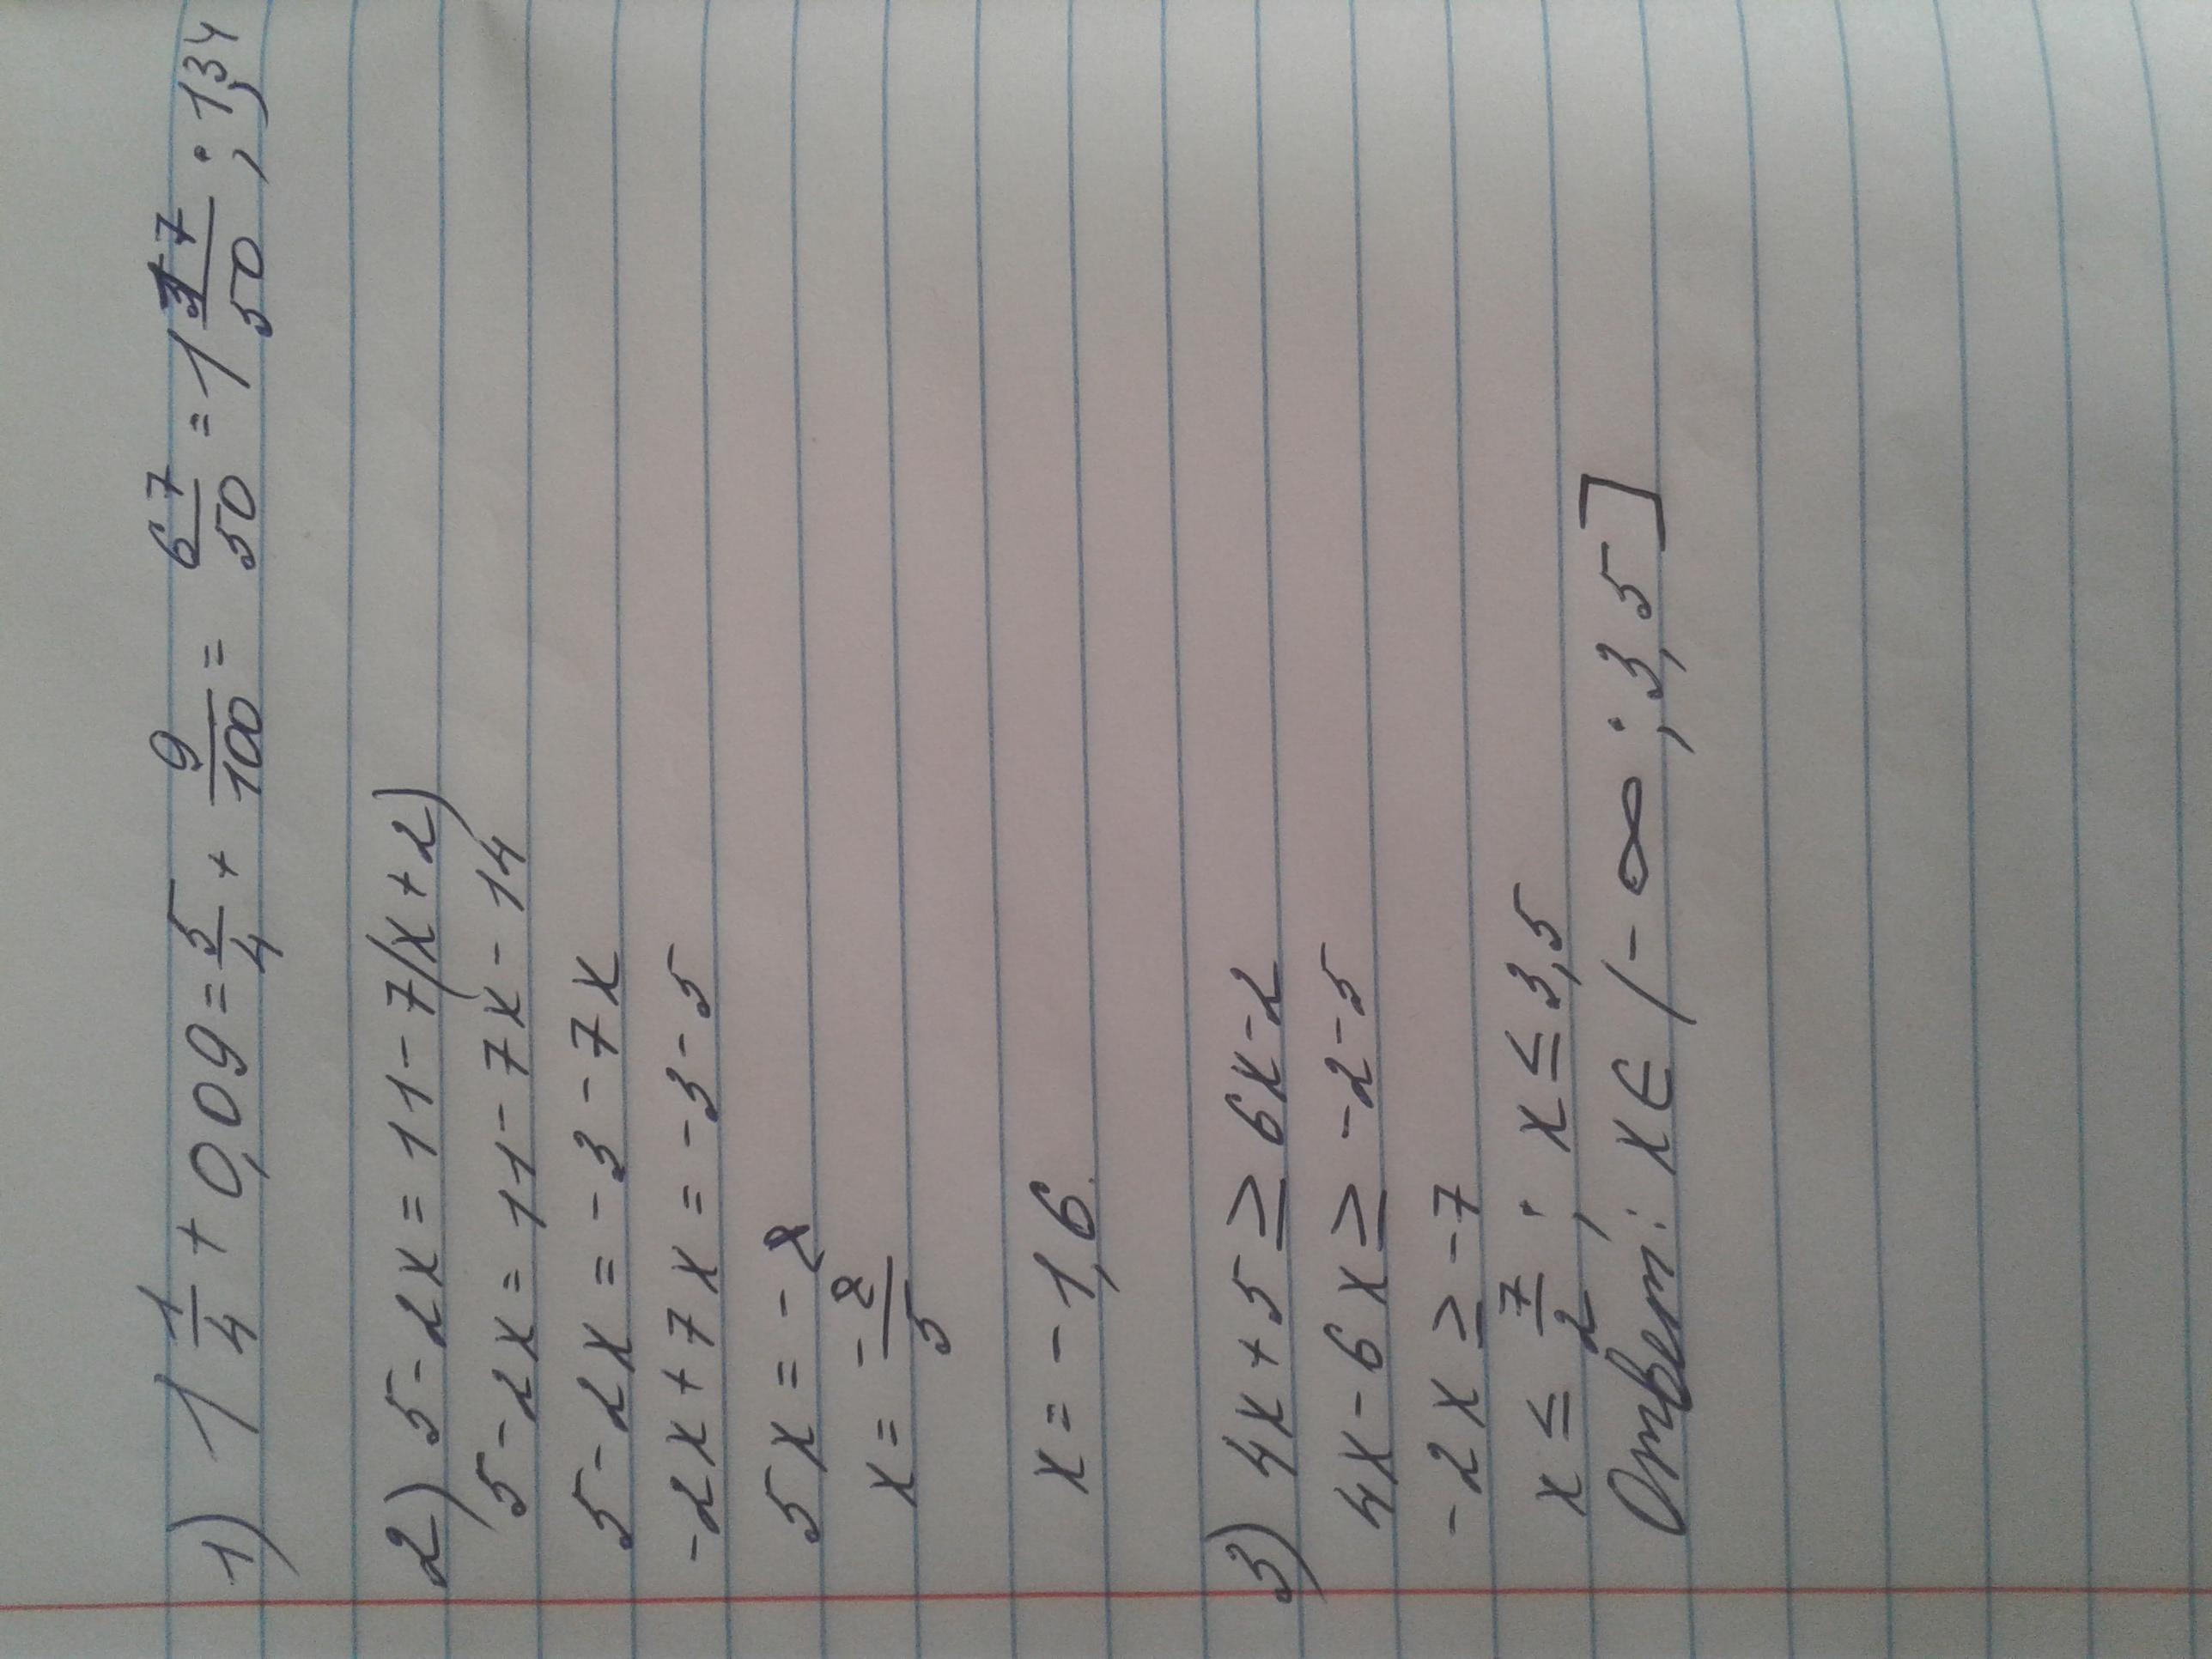 1) 1 1/4 + 0,09 = 5/4 + 9/100 = 67/50 = 1 17/50 ; 1,34
2) 5 - 2x = 11 - 7(x + 2)
5 - 2x = 11 - 7x - 14
5 - 2x = - 3 - 7x
-2x + 7x = - 3 - 5
5x = - 8
x = - 8/5
x = - 1,6.
3) 4x + 5 ≥ 6x - 2
4x - 6x ≥ - 2 - 5
- 2x ≥ - 7
x ≤ 7/2 ; x ≤ 3,5
Ответ: x ∈ (- ∞ ; 3,5]